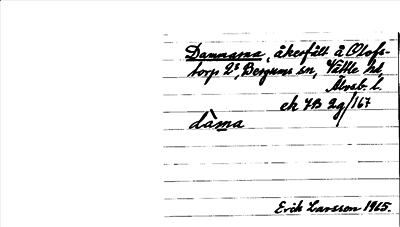 Dammarna, åkerfält å Olofs-
torp 2³, Bergums sn, Vättle hd,
Älvsb. l.
ek JB 2g/167
dàma
Erik Larsson 1965.